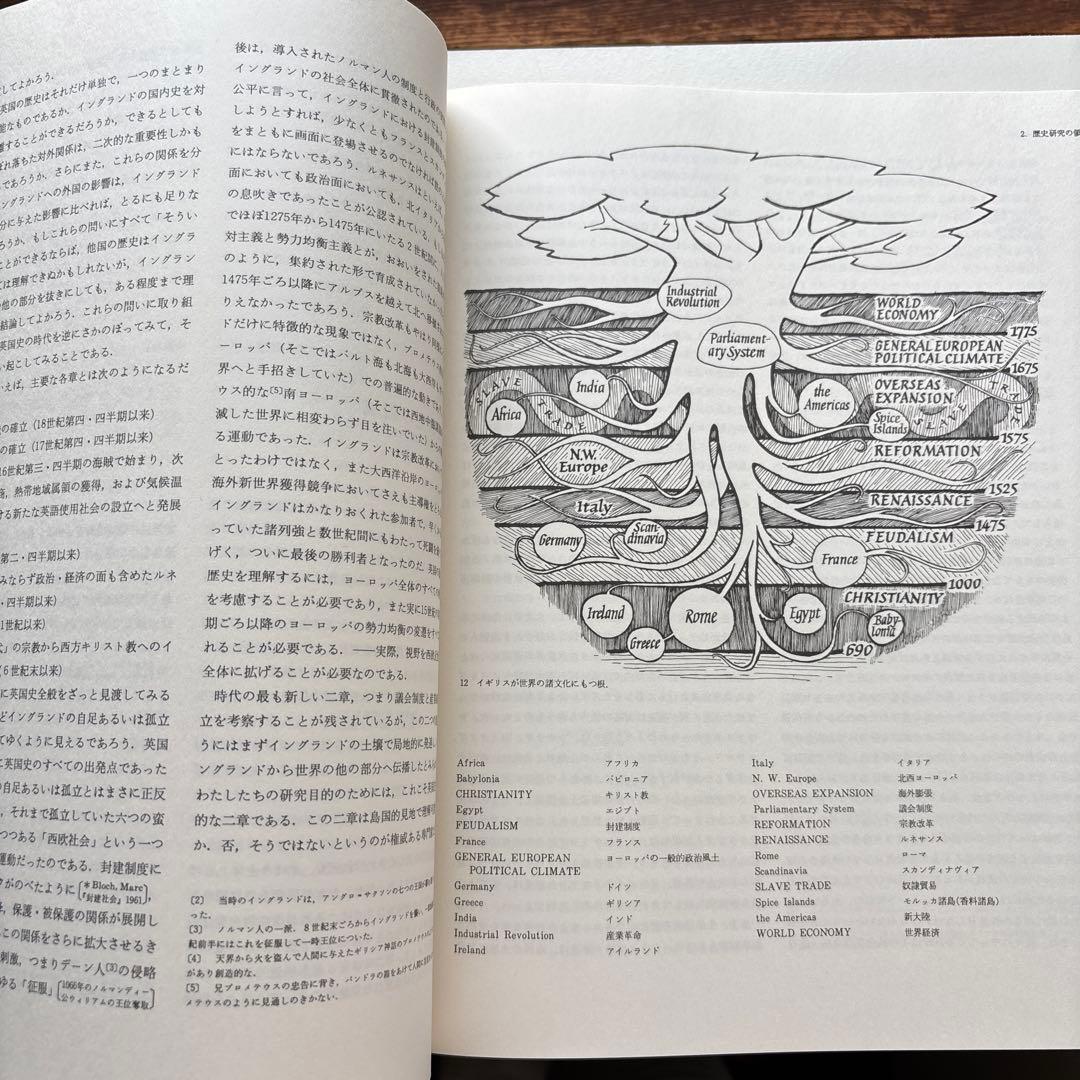 してよかろう.
英国の歴史はそれだけ単独で,一つのまとまり
能なものであるか.イングランドの国内史を対
離することができるだろうか,できるとしても
ぼれ落ちた対外関係は,二次的な重要性しかも
であろうか.さらにまた,これらの関係を分
ングランドへの外国の影響は,イングランド
分に与えた影響に比べれば,とるにも足りな
ろうか.もしこれらの問いにすべて「そうい
ことができるならば,他国の歴史はイングラ
ては理解できぬかもしれないが,イングラン
の他の部分を抜きにしても,ある程度まで理
結論してよかろう.これらの問いに取り組
英国史の時代を逆にさかのぼってみて,そ
い起こしてみることである.
いえば,主要な各章とは次のようになるだ
の確立(18世紀第四・四半期以来)
の確立(17世紀第四・四半期以来)
16世紀第三・四半期の海賊で始まり,次
熱帯地域属領の獲得,および気候温
ける新たな英語使用社会の設立へと発展
第二・四半期以来)
みならず政治・経済の面も含めたルネ
・四半期以来)
1世紀以来)
の宗教から西方キリスト教へのイ
(6世紀末以来)
に英国史全般をざっと見渡してみる
どイングランドの自足あるいは孤立
てゆくように見えるであろう.英国
に英国史のすべての出発点であった
の自足あるいは孤立とはまさに正反
それまで孤立していた六つの蛮
つつある「西欧社会」という一つ
運動だったのである.封建制度に
クがのべたように[*Bloch, Marc『封建社会』1961],
保護・被保護の関係が展開し
この関係をさらに拡大させるき
刺激,つまりデーン人[3]の侵略
ゆる「征服」[1066年のノルマンディー公ウィリアムの王位奪取]
後は,導入されたノルマン人の制度と行政の
イングランドの社会全体に貫徹されたのであ
公平に言って,イングランドにおける封建制
しようとすれば,少なくともフランスとスカン
をまともに画面に登場させるのでなければ
にはならないであろう.ルネサンスはといえば,
面においても政治面においても,北イタリア
の息吹きであったことが公認されている.もし
でほぼ1275年から1475年にいたる2世紀間に,
対主義と勢力均衡主義とが,おおいをされた
のように,集約された形で育成されていなかっ
1475年ごろ以降にアルプスを越えて北へ移植
りえなかったであろう.宗教改革もやはり
ドだけに特徴的な現象ではなく,プロメテウ
ーロッパ(そこではバルト海も北海も大西洋も
界へと手招きしていた)での普遍的な動きで
ウス的な[5]南ヨーロッパ(そこでは西地中海
滅した世界に相変わらず目を注いでいた)から
る運動であった.イングランドは宗教改革にお
とったわけではなく,また大西洋沿岸のヨーロ
海外新世界獲得競争においてさえも主導権を
イングランドはかなりおくれた参加者で,早く
っていた諸列強と数世紀間にもわたって死闘を
げく,ついに最後の勝利者となったのだ.英国
歴史を理解するには,ヨーロッパ全体のすべて
を考慮することが必要であり,また実に15世紀
期ごろ以降のヨーロッパの勢力均衡の変遷を
れることが必要である.――実際,視野を西欧
全体に拡げることが必要なのである.
時代の最も新しい二章,つまり議会制度と産業
立を考察することが残されているが,この二つの
うにはまずイングランドの土壌で局地的に発達し
ングランドから世界の他の部分へ伝播したとみら
わたしたちの研究目的のためには,これこそ
的な二章である.この二章は島国的見地で理解
か.否,そうではないというのが権威ある専門
[2] 当時のイングランドは,アングロ=サクソンの七つの王国が
った.
[3] ノルマン人の一派.8世紀末ごろからイングランドを襲い,
紀前半にはこれを征服して一時王位についた.
[4] 天界から火を盗んで人間に与えたギリシア神話のプロメテウス
があり創造的な.
[5] 兄プロメテウスの忠告に背き,パンドラの箱をあけて人間に
メテウスのように見通しのきかない.
2. 歴史研究の領
Industrial
Revolution
Parliament-
ary System
WORLD
ECONOMY
1775
GENERAL EUROPEAN
POLITICAL CLIMATE
1675
SLAVE
TRADE
India
Africa
the
Americas
Spice
Islands
OVERSEAS
EXPANSION
SLAVE
TRADE
1575
N.W.
Europe
REFORMATION
1525
Italy
RENAISSANCE
1475
Germany
Scan-
dinavia
France
FEUDALISM
1000
CHRISTIANITY
Ireland
Greece
Rome
Egypt
Baby-
lonia
690
12 イギリスが世界の諸文化にもつ根.
Africa アフリカ
Babylonia バビロニア
CHRISTIANITY キリスト教
Egypt エジプト
FEUDALISM 封建制度
France フランス
GENERAL EUROPEAN ヨーロッパの一般的政治風土
POLITICAL CLIMATE
Germany ドイツ
Greece ギリシア
India インド
Industrial Revolution 産業革命
Ireland アイルランド
Italy イタリア
N. W. Europe 北西ヨーロッパ
OVERSEAS EXPANSION 海外膨張
Parliamentary System 議会制度
REFORMATION 宗教改革
RENAISSANCE ルネサンス
Rome ローマ
Scandinavia スカンディナヴィア
SLAVE TRADE 奴隷貿易
Spice Islands モルッカ諸島(香料諸島)
the Americas 新大陸
WORLD ECONOMY 世界経済